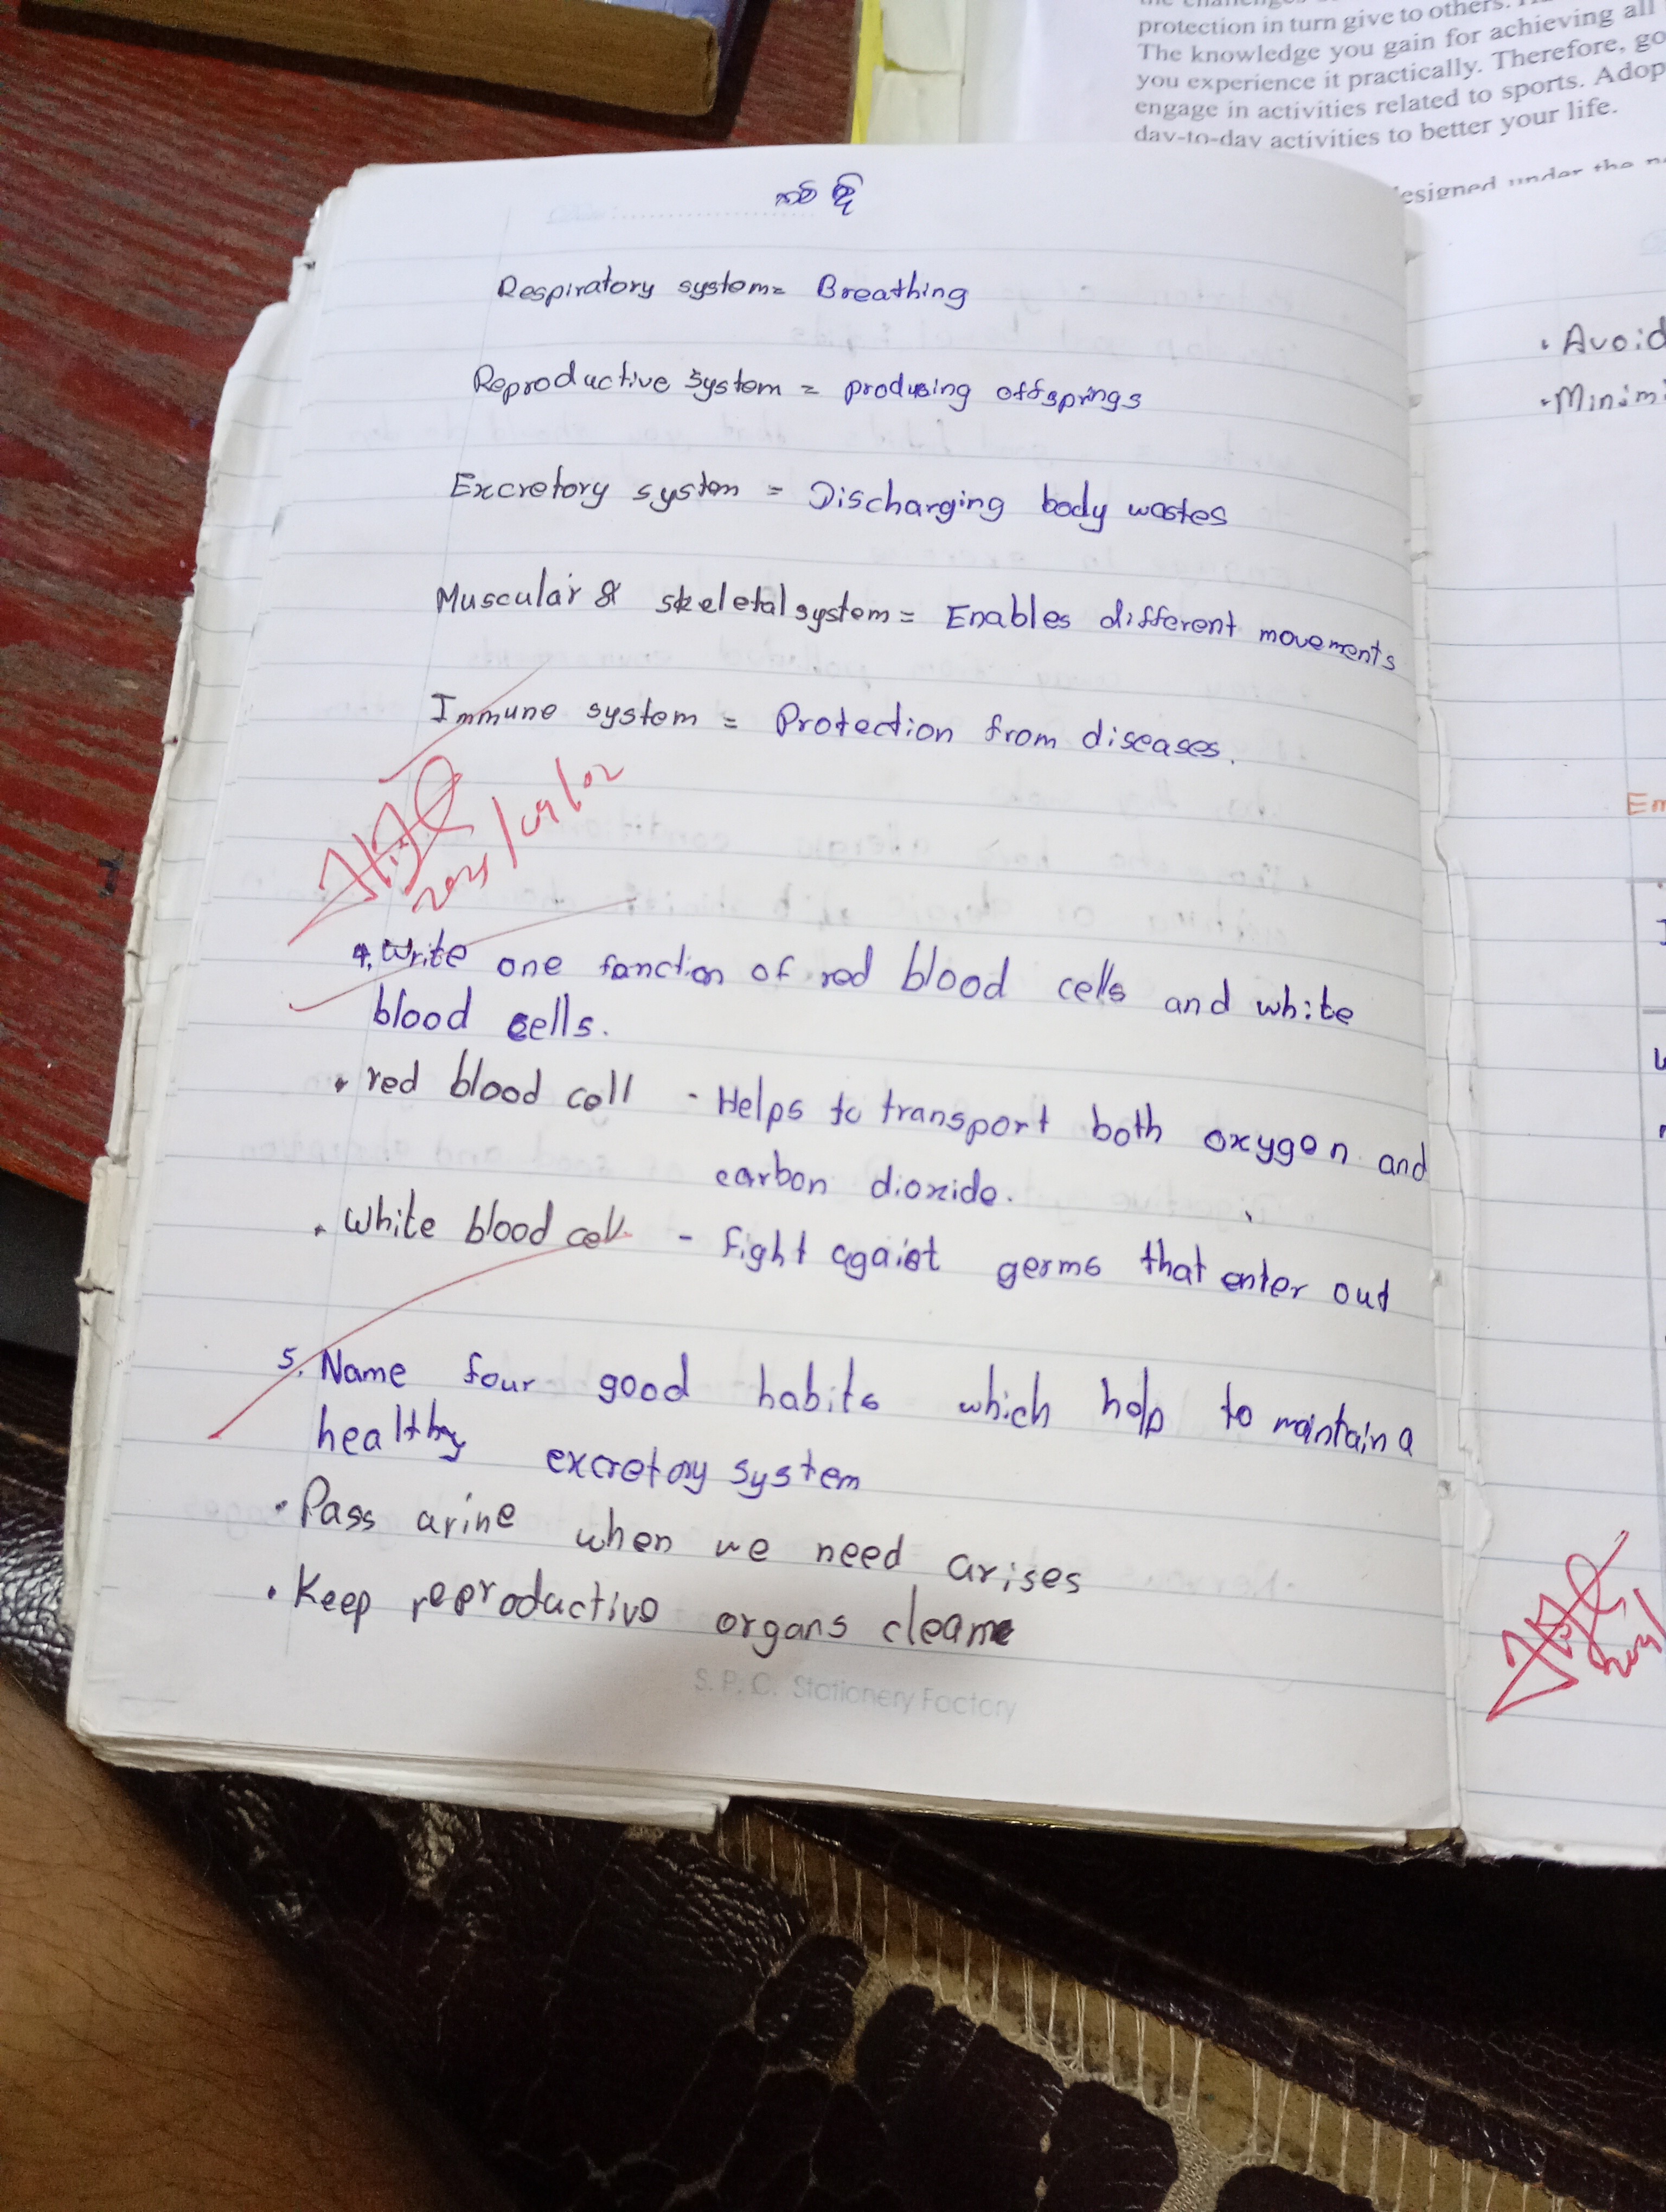 protection in turn give to others.
The knowledge you gain for achieving all
you experience it practically. Therefore, go
engage in activities related to sports. Adop
day-to-day activities to better your life.
esigned under the
Respiratory system= Breathing
Reproductive System = produsing offsprings
Excretory system = Discharging body wastes
Muscular & skeletal system = Enables different movements
Immune system = Protection from diseases.
2021/09/02
4. Write one fanction of red blood cells and white
blood cells.
• red blood cell - Helps to transport both oxygen and
carbon dioxide.
• White blood cell - fight agaist germs that enter out
5. Name four good habits which help to maintain a
healthy excretory system
• Pass arine when we need arises
• Keep reproductive organs clean
S. P. C. Stationery Factory
• Avoid
• Minimi
Em